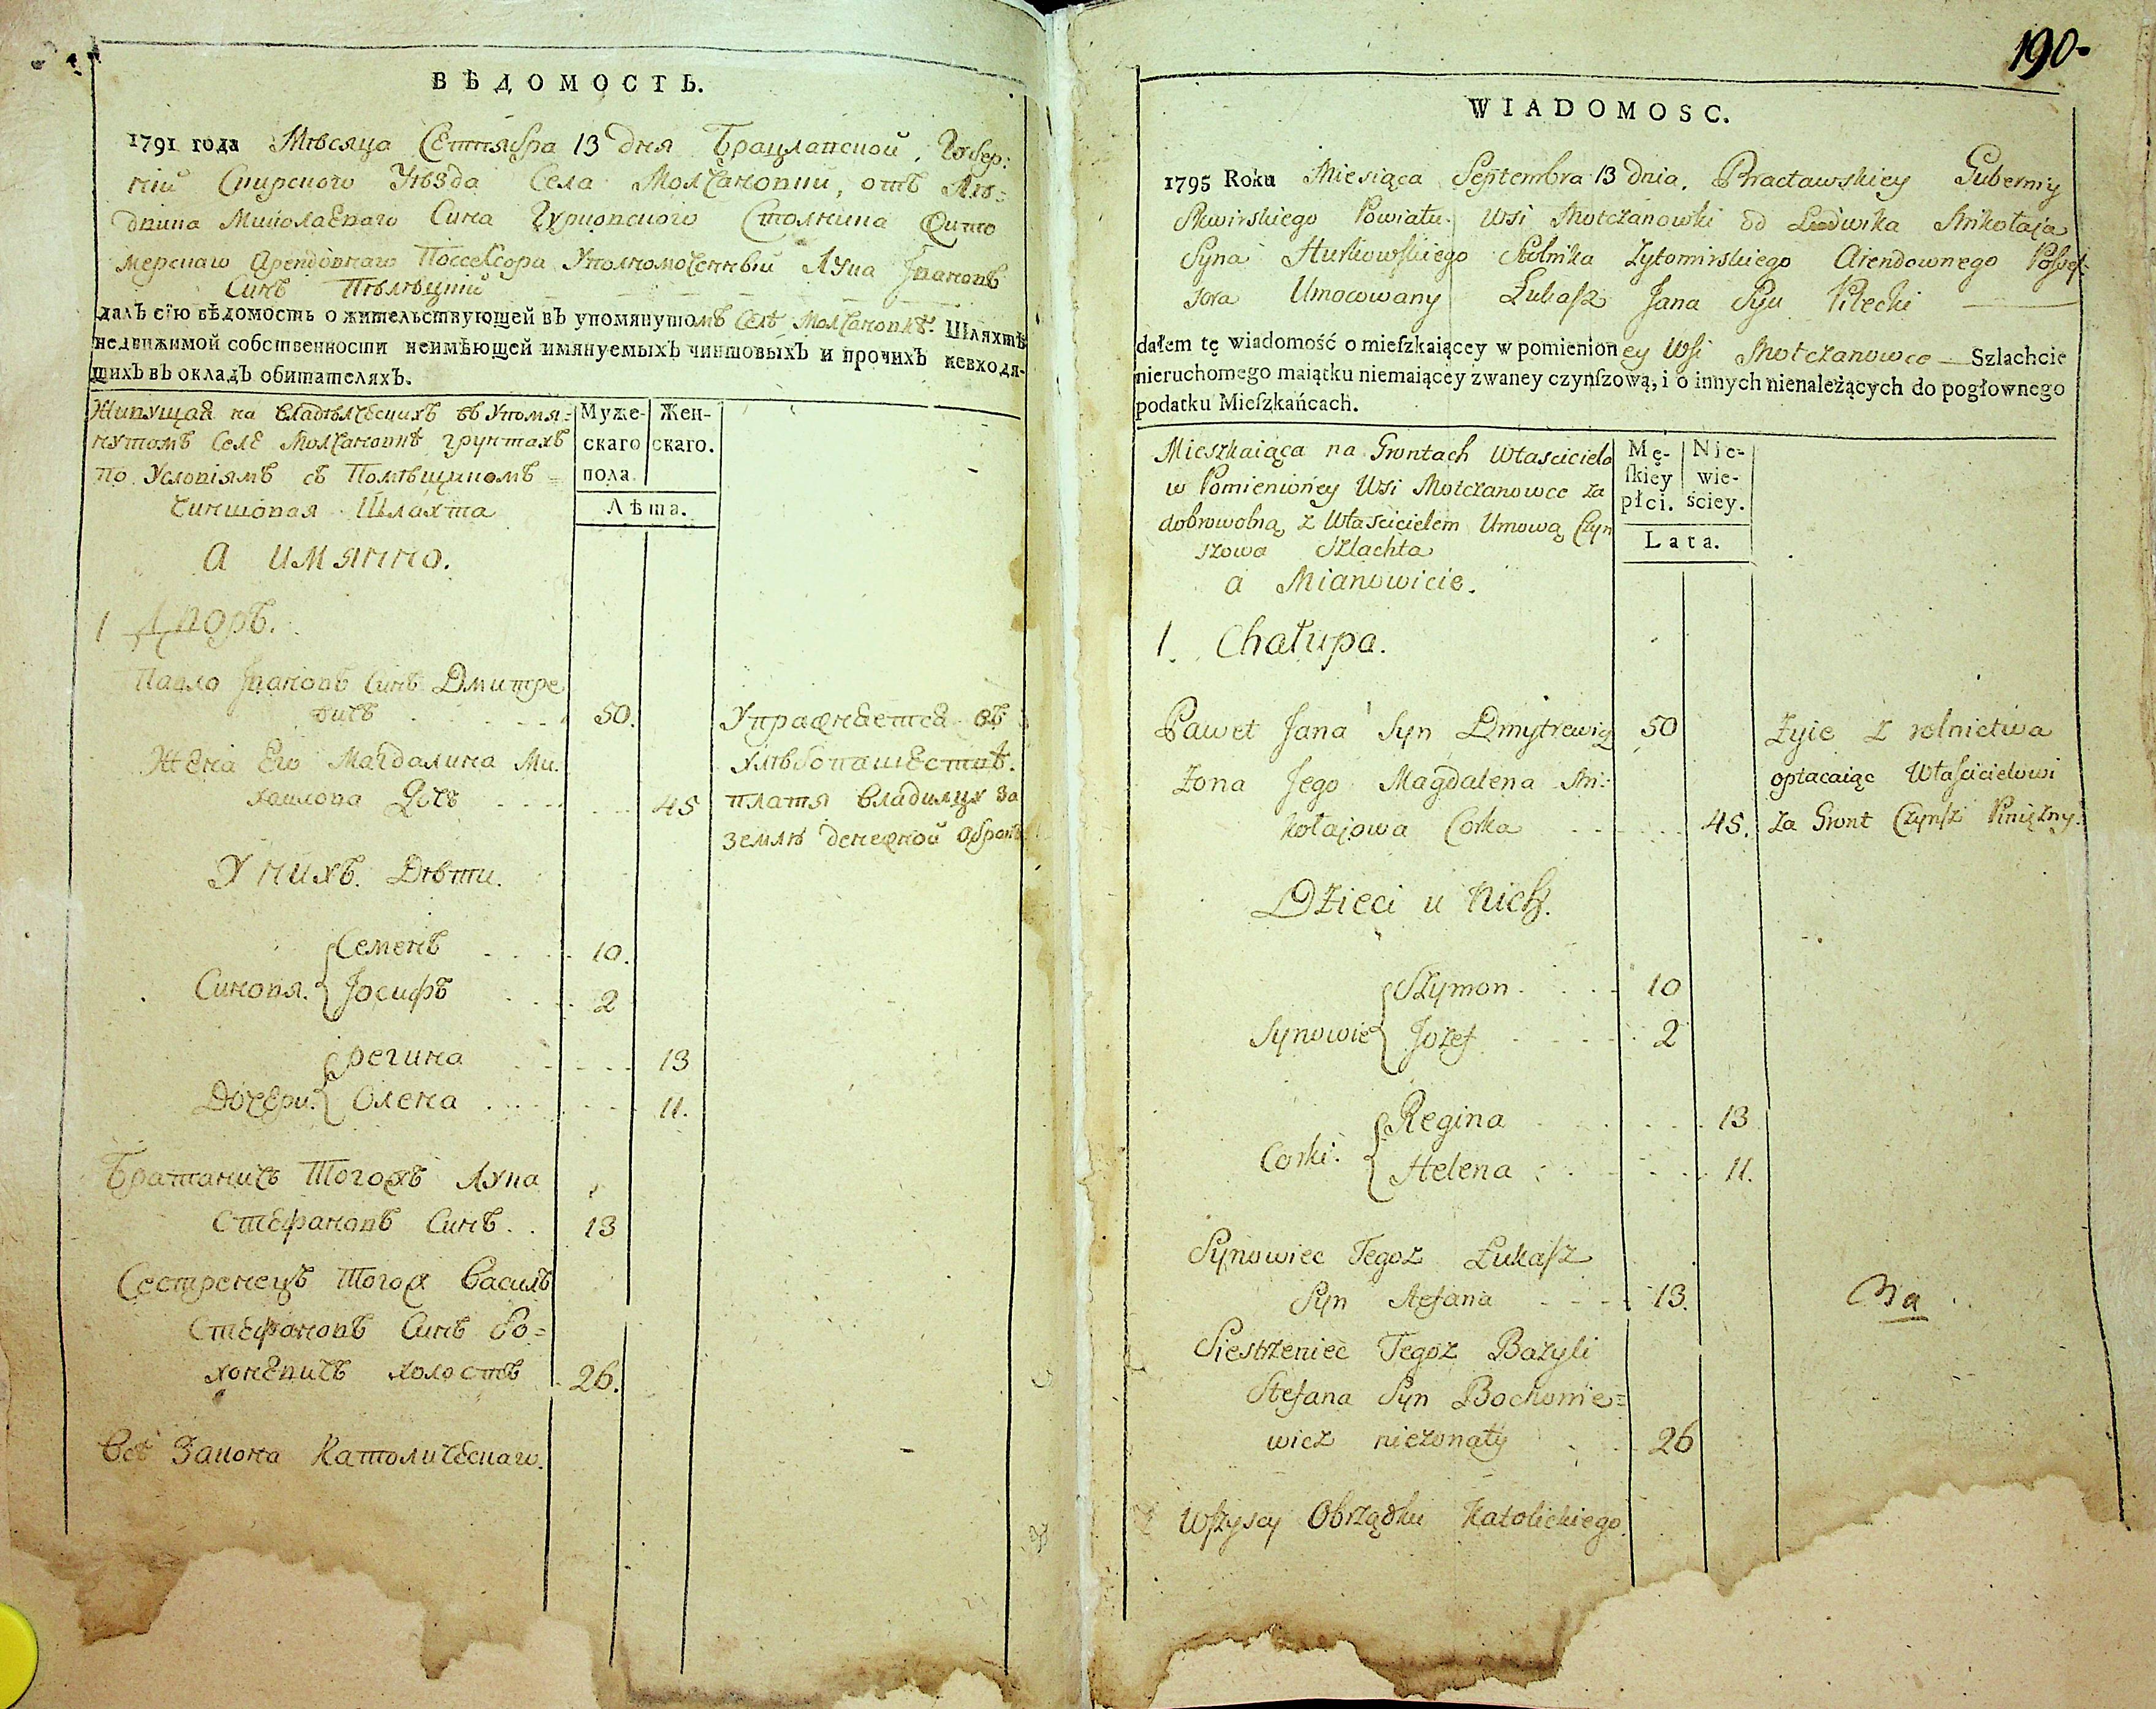 ВѢДОМОСТЬ.
1791 года Мѣсяца Септября 13 дня Брацлавской, Губер:
нїи Сквирского Уѣзда Села Молчановки, отъ Лю=
двика Миколаеваго Сина Гурковского Столника Жито
мерскаго Арендовнаго Поссесора Уполномоченный Лука Ивановъ
Синъ Пѣлѣцкїй
далъ сїю вѣдомость о жительствующей въ упомянутомъ Селѣ Молчановкѣ. Шляхтѣ
недвижимой собственности неимѣющей имянуемыхъ чиншовыхъ и прочихъ невходя-
щихъ въ окладъ обитателяхъ.
Живущая на владѣлческихъ въ Упомя=
нутомъ Селе Молчановкѣ грунтахъ
по Условїямъ съ Помѣщикомъ =
Чиншовая Шляхта
а имянно.
Муже- Жен-
скаго скаго.
пола
Лѣта.
1 Дворъ.
Павло Ивановъ Синъ Дмитре
вичъ 50.
Жена Его Магдалина Ми.
хаилова Дочь 45
Упражняется въ
хлѣбопашествѣ.
платя владилцу за
землѣ денежной оброкъ
У нихъ. Дѣти.
Синовя. Семенъ 10.
Іосифъ 2
Дочери. Регина 13
Олена 11.
Братаничъ Тогожъ Лука
Стефановъ Синъ. 13
Сестренецъ Тогож Василъ
Стефановъ Синъ Бо=
хоневичъ холостъ 26.
Всѣ Закона Католическаго.
190-
WIADOMOSC.
1795 Roku Miesiąca Septembra 13 dnia. Bracławskiey Gubernij
Skwirskiego Powiatu. Wsi Mołczanowki od Ludwika Mikołaja
Syna Hurkowskiego Stolnika Zytomirskiego Arendownego Possej=
sora Umocowany Łukasz Jana Syn Pilecki
dałem tę wiadomość o mieszkaiącey w pomienioney Wsi Mołczanowce Szlachcie
nieruchomego maiątku niemaiącey zwaney czynszową, i o innych nienależących do pogłownego
podatku Mieszkańcach.
Mieszkaiąca na Gruntach Własciciela
w Pomienioney Wsi Mołczanowce za
dobrowolną z Włascicielem Umową Czyn
szowa Szlachta
a Mianowicie.
Mę- Nie-
skiey wie-
płci. sciey.
Lata.
1. Chałupa.
Paweł Jana Syn Dmytrewicz 50
Zona Jego Magdalena Mi:
kołajowa Corka 45.
Zyie z rolnictwa
opłacaiąc Włascicielowi
za Grunt Czynsz Pinięzny.
Dzieci u Nich.
Synowie Szymon. 10
Jozef 2
Corki. Regina 13
Helena 11.
Synowiec Tegoz Łukasz
Syn Stefana 13.
Siestrzeniec Tegoz Bazyli
Stefana Syn Bochonie=
wicz niezonaty 26
Wszyscy Obrządku Katolickiego.